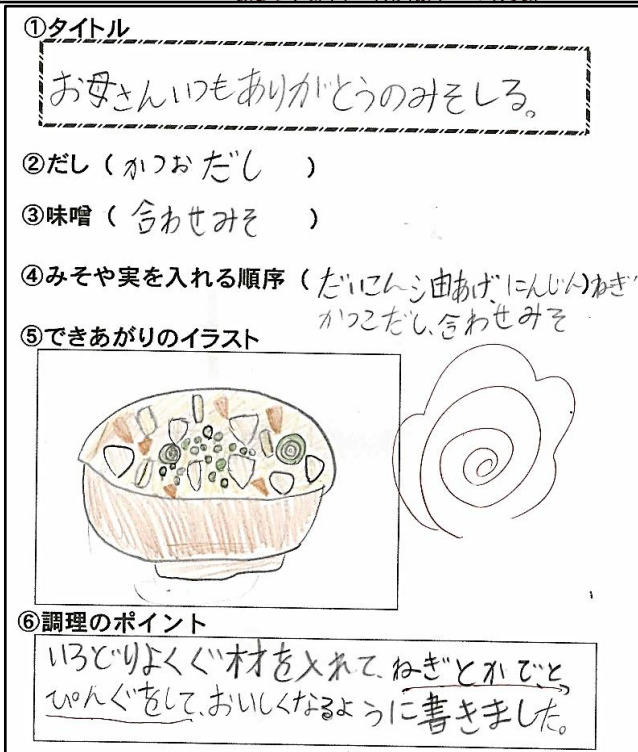 ①タイトル
お母さんいつもありがとうのみそしる。
②だし（かつおだし　）
③味噌（合わせみそ　）
④みそや実を入れる順序（だいこん、油あげ、にんじん）ねぎ
かつこだし、合わせみそ
⑤できあがりのイラスト
⑥調理のポイント
いろどりよくぐ材を入れて、ねぎとかでと
ぴんぐをして、おいしくなるように書きました。